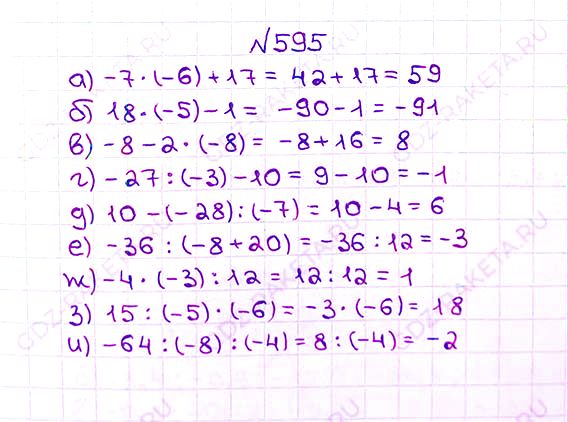 №595
а) -7·(-6)+17 = 42+17 = 59
б) 18·(-5)-1 = -90-1 = -91
в) -8-2·(-8) = -8+16 = 8
г) -27:(-3)-10 = 9-10 = -1
д) 10-(-28):(-7) = 10-4 = 6
е) -36:(-8+20) = -36:12 = -3
ж) -4·(-3):12 = 12:12 = 1
з) 15:(-5)·(-6) = -3·(-6) = 18
и) -64:(-8):(-4) = 8:(-4) = -2
GDZ-RAKETA.RU